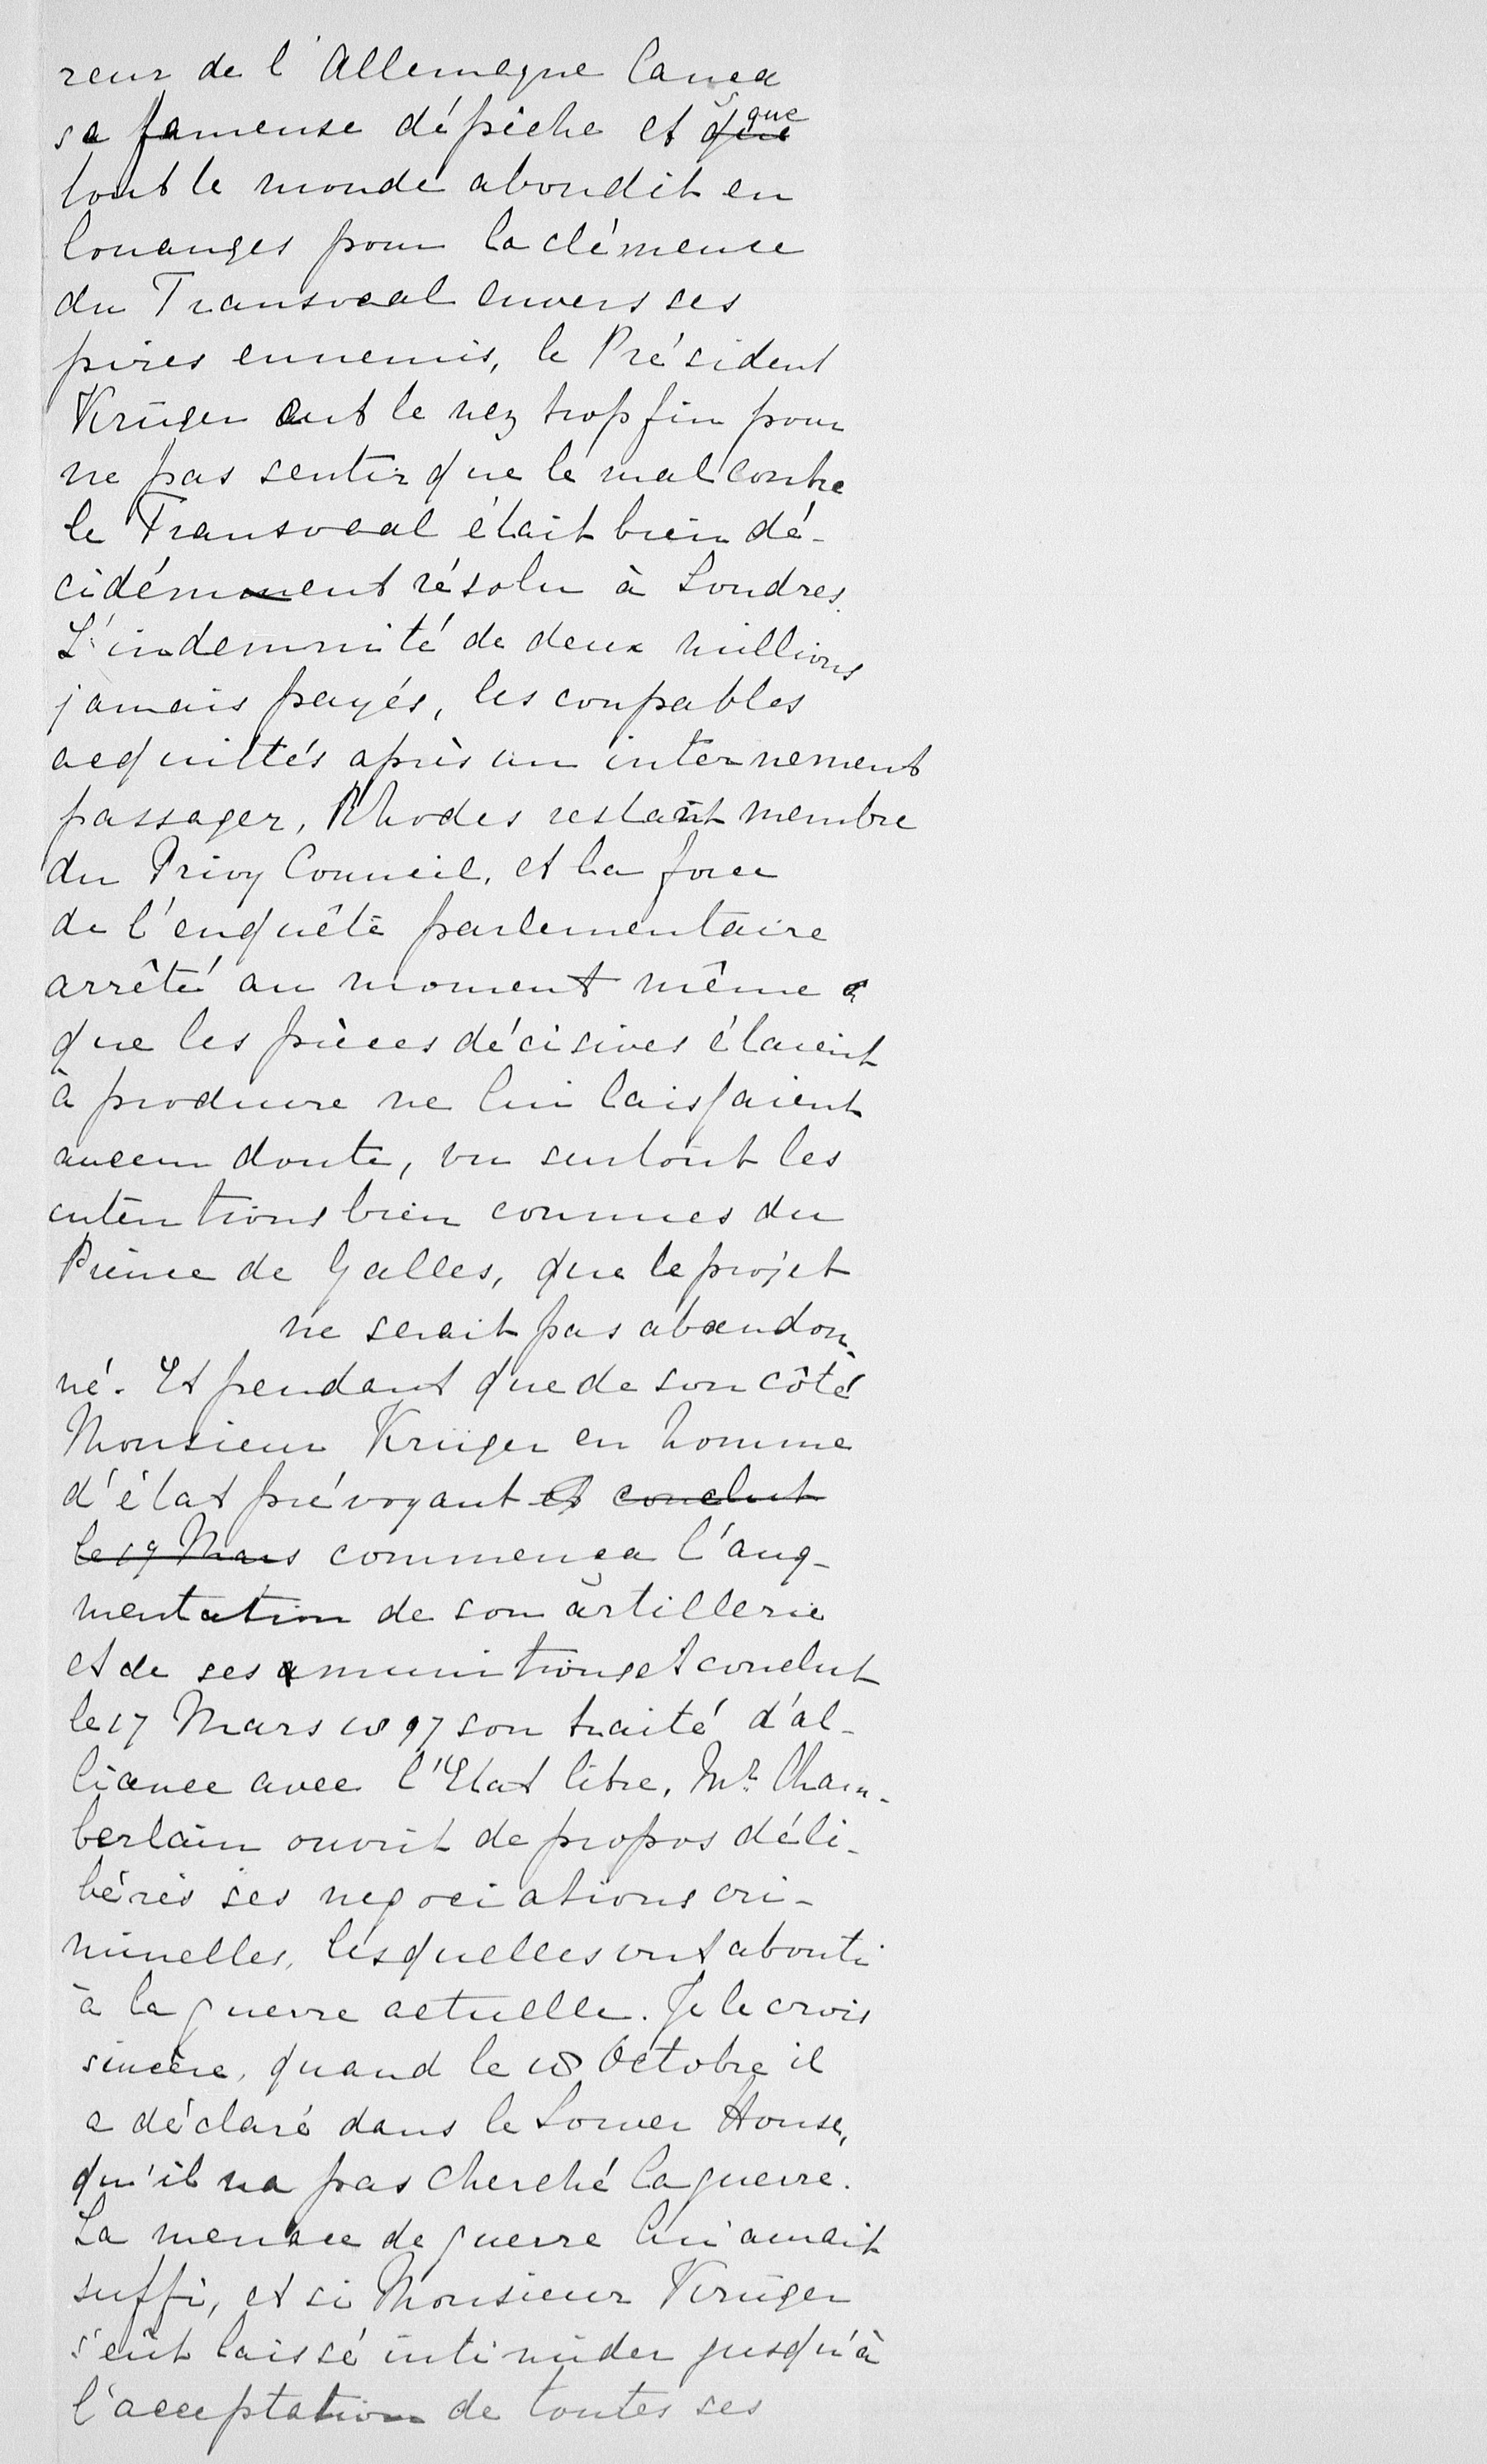 reur de l'Allemagne lança
sa fameuse dépêche et que
tout le monde abondit en
louanges pour la clémence
du Transvaal envers ses
pires ennemis, le Président
Krüger eut le nez trop fin pour
ne pas sentir que le mal contre
le Transvaal était bien dé-
cidément résolu à Londres.
L'indemnité de deux millions
jamais payés, les coupables
acquittés après un internement
passager, Rhodes restant membre
du Privy Council, et la farce
de l'enquête parlementaire
arrêté au moment même
que les pièces décisives étaient
à produire ne lui laissaient
aucun doute, vu surtout les
intentions bien connues du
Prince de Galles, que le projet
ne serait pas abandon-
né. Et pendant que de son côté
Monsieur Krüger en homme
d'état prévoyant et conclut
le 19 Mars commença l'aug-
mentation de son artillerie
et de ses munitions et conclut
le 17 Mars 1897 son traité d'al-
liance avec l'Etat libre, Mr. Cham-
berlain ouvrit de propos déli-
bérés ses negociations cri-
minelles, lesquelles ont abouti
à la guerre actuelle. Je le crois
sincère, quand le 18 Octobre il
a déclaré dans le Lower House,
qu'il na pas cherché la guerre.
La menace de guerre lui aurait
suffi, et si Monsieur Krüger
s'eût laissé intimider jusqu'à
l'acceptation de toutes ses